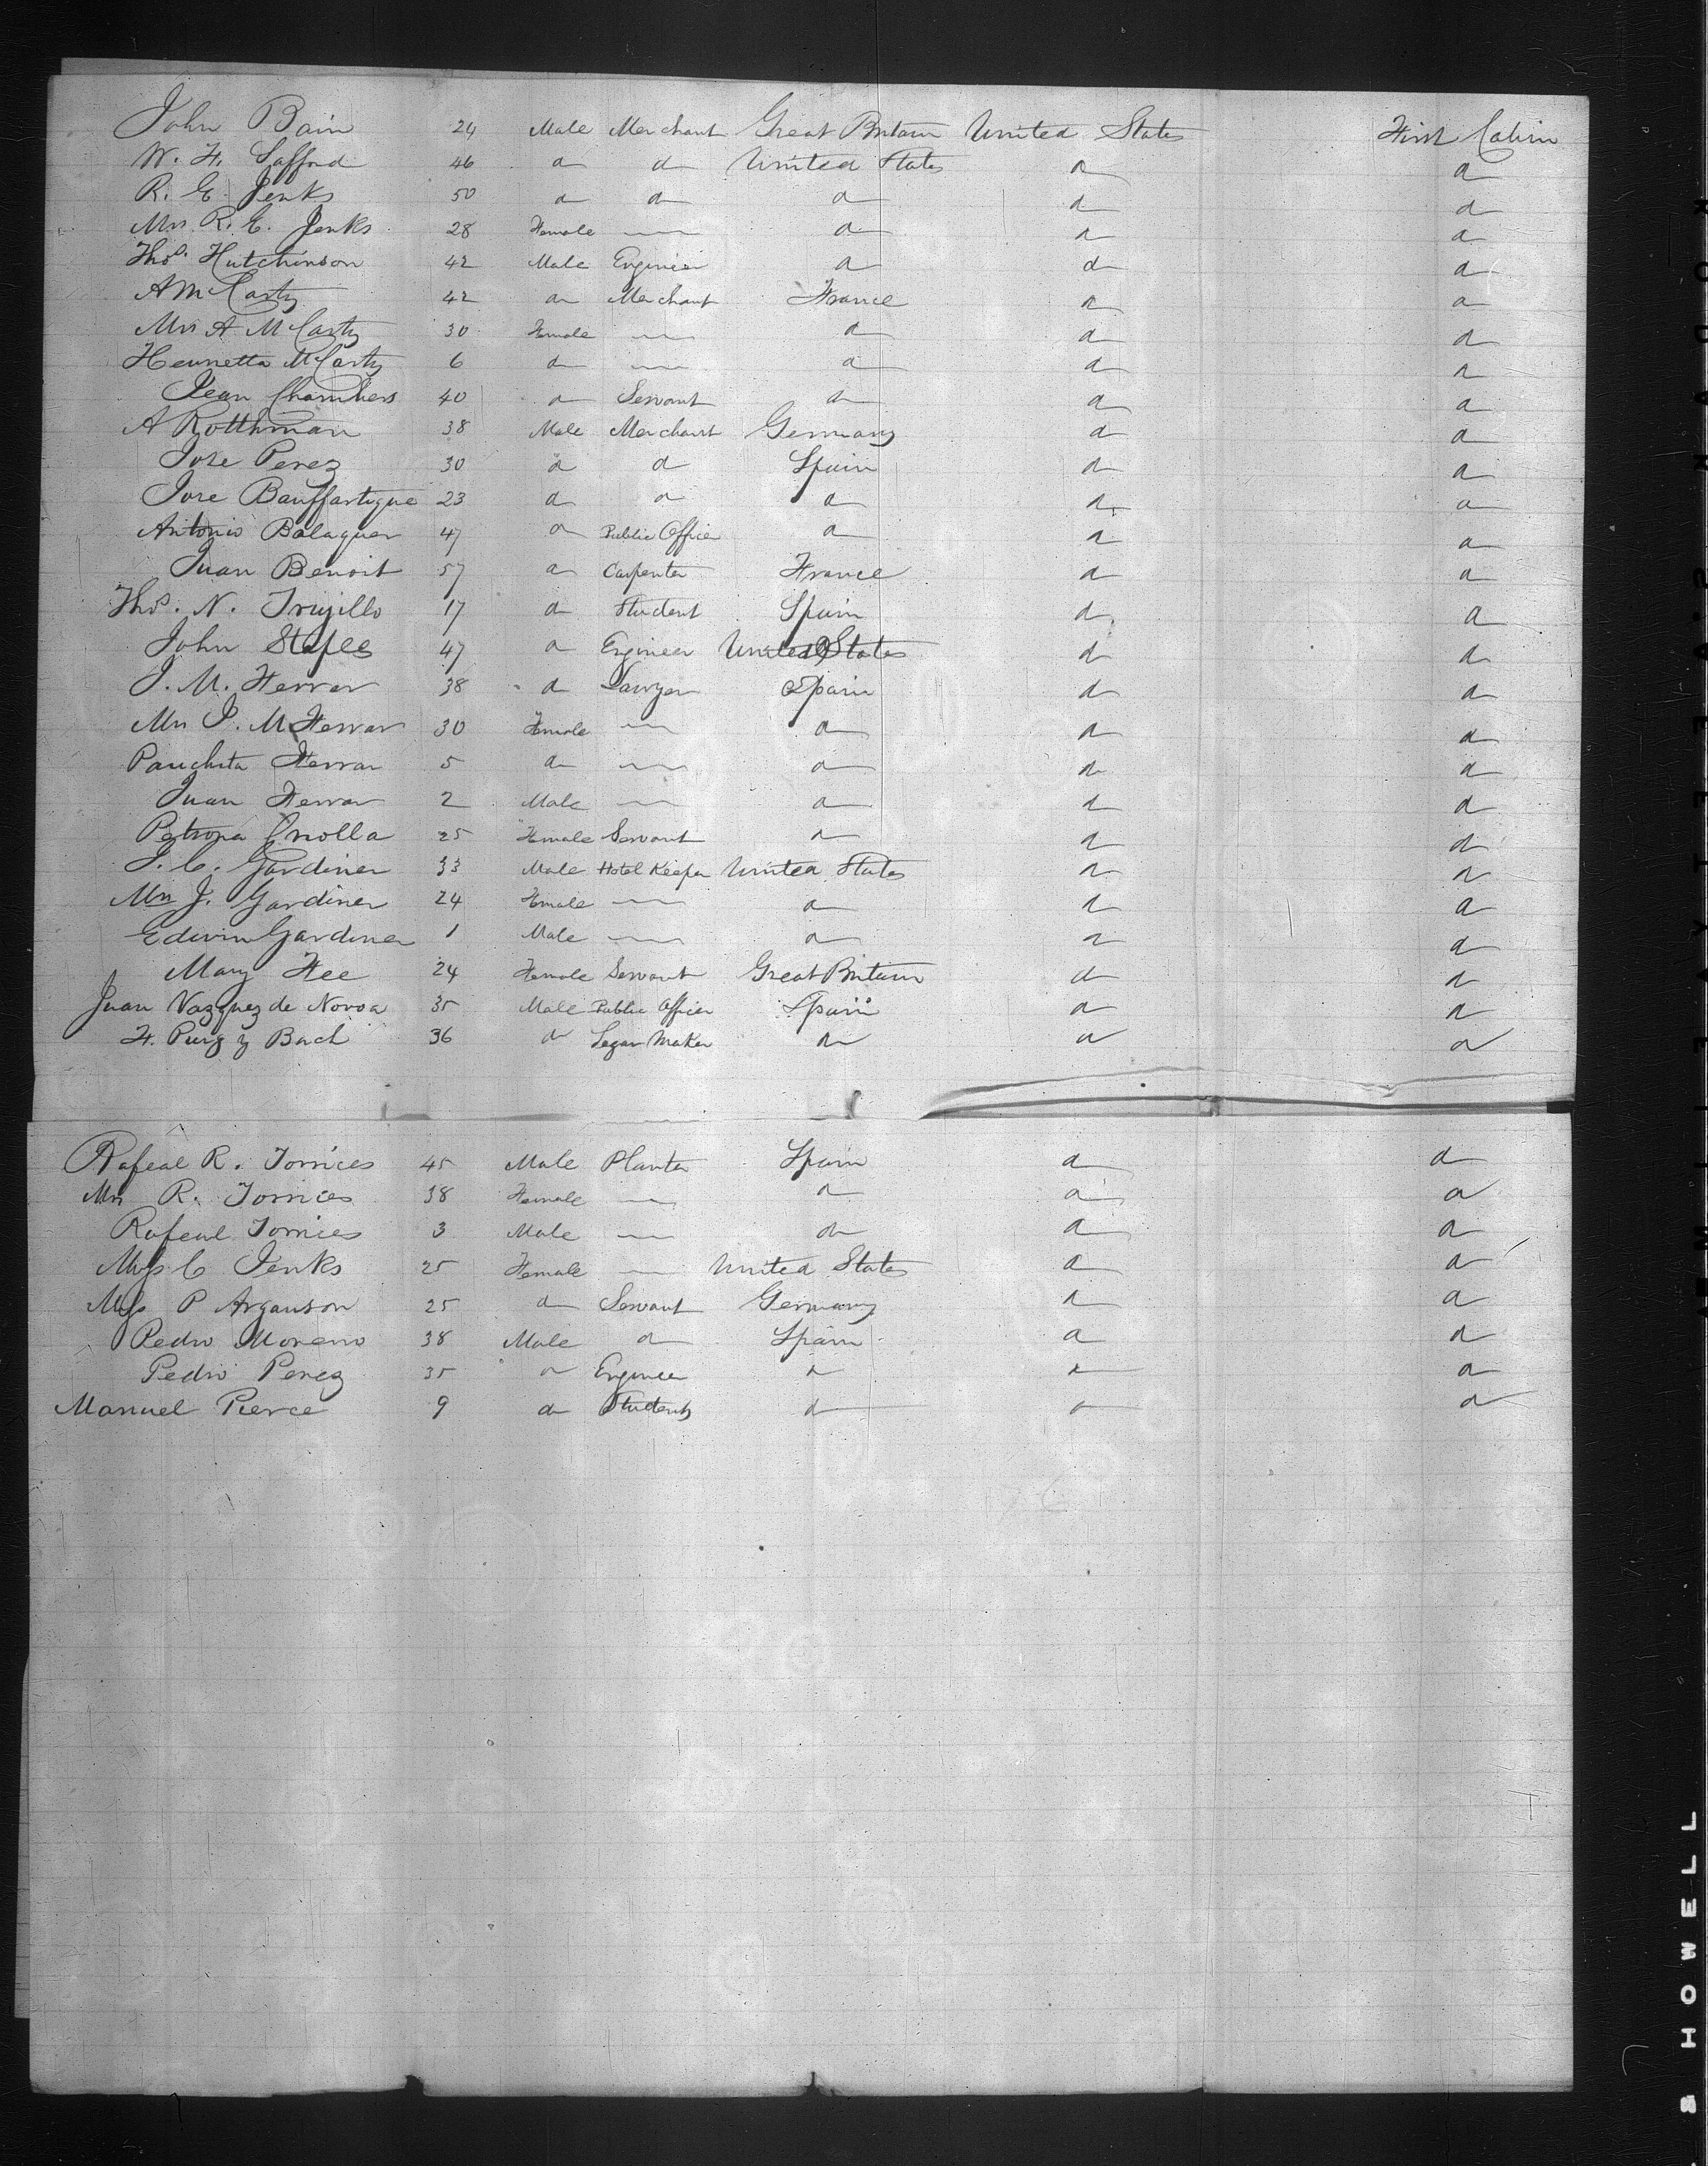 John Bain 24 Male Merchant Great Britain United States First Cabin
W. H. Safford 46 d d United States d d
R. E. Jenks 50 d d d d d
Mrs R. E. Jenks 28 Female — d d d
Thos. Hutchinson 42 Male Engineer d d d
A McCarty 42 d Merchant France d d
Mrs A McCarty 30 Female — d d d
Henrietta McCarty 6 d — d d d
Jean Chambers 40 d Servant d d d
A Rotthman 38 Male Merchant Germany d d
Jose Perez 30 d d Spain d d
Jose Bauffartigue 23 d d d d d
Antonio Balaguer 47 d Public Officer d d d
Juan Benoit 57 d Carpenter France d d
Thos. N. Trujillo 17 d Student Spain d d
John Staples 47 d Engineer United States d d
J. M. Ferrar 38 d Lawyer Spain d d
Mrs J. M Ferrar 30 Female — d d d
Panchita Ferrar 5 d — d d d
Juan Ferrar 2 Male — d d d
Petrona Criolla 25 Female Servant d d d
J. C. Gardiner 33 Male Hotel Keeper United States d d
Mrs J. Gardiner 24 Female — d d d
Edwin Gardiner 1 Male — d d d
Mary Fee 24 Female Servant Great Britain d d
Juan Vazquez de Novoa 35 Male Public Officer Spain d d
F. Puig y Bach 36 d Segar Maker d d d
Rafeal R. Torrices 45 Male Planter Spain d d
Mrs R. Torrices 38 Female — d d d
Rafeal Torrices 3 Male — d d d
Miss C Jenks 25 Female — United States d d
Miss P Arganson 25 d Servant Germany d d
Pedro Moreno 38 Male d Spain d d
Pedro Perez 35 d Engineer d d d
Manuel Pierce 9 d Student d d d